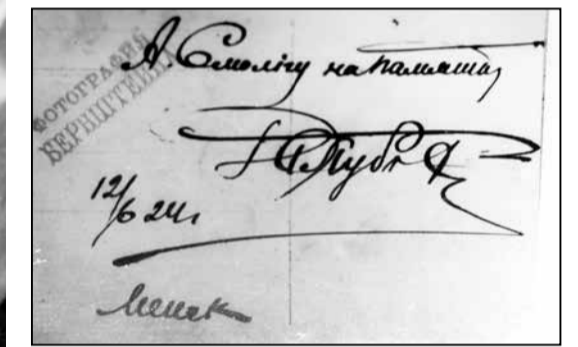 ФОТОГРАФИЯ
БЕРНШТЕЙН
А. Смолічу на памятку
12/6 24 г.
Менск